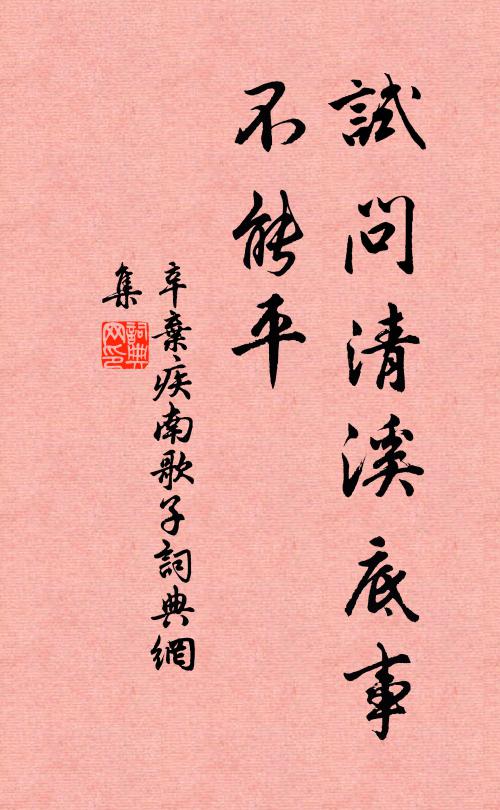 試問清溪底事
不能平
辛棄疾南歌子詞典網
集
詞典
网印